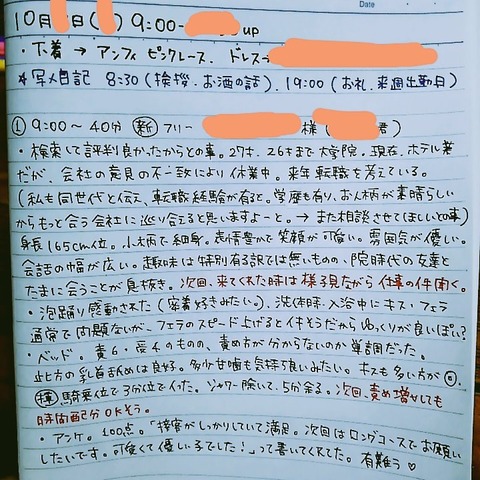 Date
10月 日( ) 9:00- up
・下着 → アンフィ ピンクレース. ドレス→
*写メ日記 8:30(挨拶.お酒の話). 19:00(お礼.来週出勤日)
① 9:00〜40分 ㊟ フリー 様( 君)
・検索して評判良かったからとの事。27才. 26才まで大学院. 現在. ホテル業
だが、会社の意見の不一致により休業中。来年転職を考えている。
(私も同世代と伝え、転職経験が有ると。学歴も有り、お人柄が素晴らしい
からもっと合う会社に巡り合えると思いますよーと。→また相談させてほしいとの事)
身長165cm位。小柄で細身。表情豊かで笑顔が可愛い。雰囲気が優しい。
会話の幅が広い。趣味は特別有る訳では無いものの、院時代の友達と
たまに会うことが息抜き。次回、来てくれた時は様子見ながら仕事の件聞く。
・泡踊り感動された(密着好きみたい)。洗体時.入浴中にキス・フェラ
通常で問題ないが、フェラのスピード上げるとイキそうだからゆっくりが良いぽい?
・ベッド。責6・受4のものの、責め方が分からないのか単調だった。
此方の乳首舐めは良好。多少甘噛も気持ち良いみたい。キスも多い方が◎.
騎乗位で3分位でイった。シャワー除いて、5分余る。次回、責め増やしても
時間配分OKそう。
・アンケ。100点。「接客がしっかりしていて満足。次回はロングコースでお願い
したいです。可愛くて優しい子でした!」って書いてくれてた。有難う♡